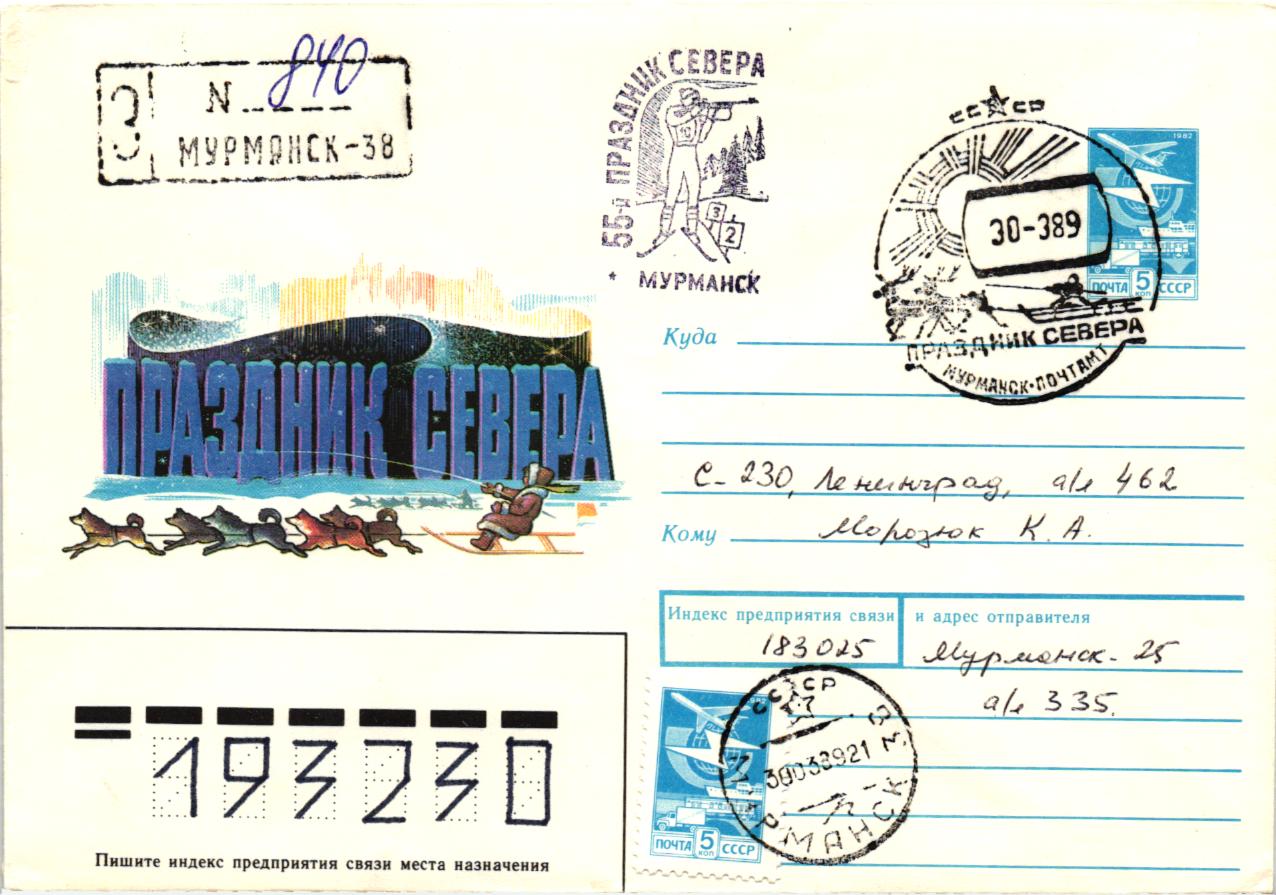 З
N 840
МУРМАНСК-38
55-й ПРАЗДНИК СЕВЕРА
10
3
2
* МУРМАНСК
СССР
30-389
ПРАЗДНИК СЕВЕРА
МУРМАНСК·ПОЧТАМТ
1982
ПОЧТА 5 КОП СССР
ПРАЗДНИК СЕВЕРА
Куда
С-230, Ленинград, а/я 462
Кому Морозюк К. А.
Индекс предприятия связи и адрес отправителя
183025 Мурманск-25
а/я 335.
СССР
30038921
МУРМАНСК 33
ПОЧТА 5 КОП СССР
193230
Пишите индекс предприятия связи места назначения